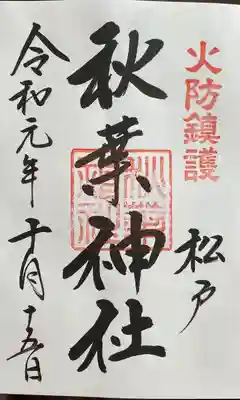 火防鎮護
松戸
秋葉神社
令和元年十月十五日